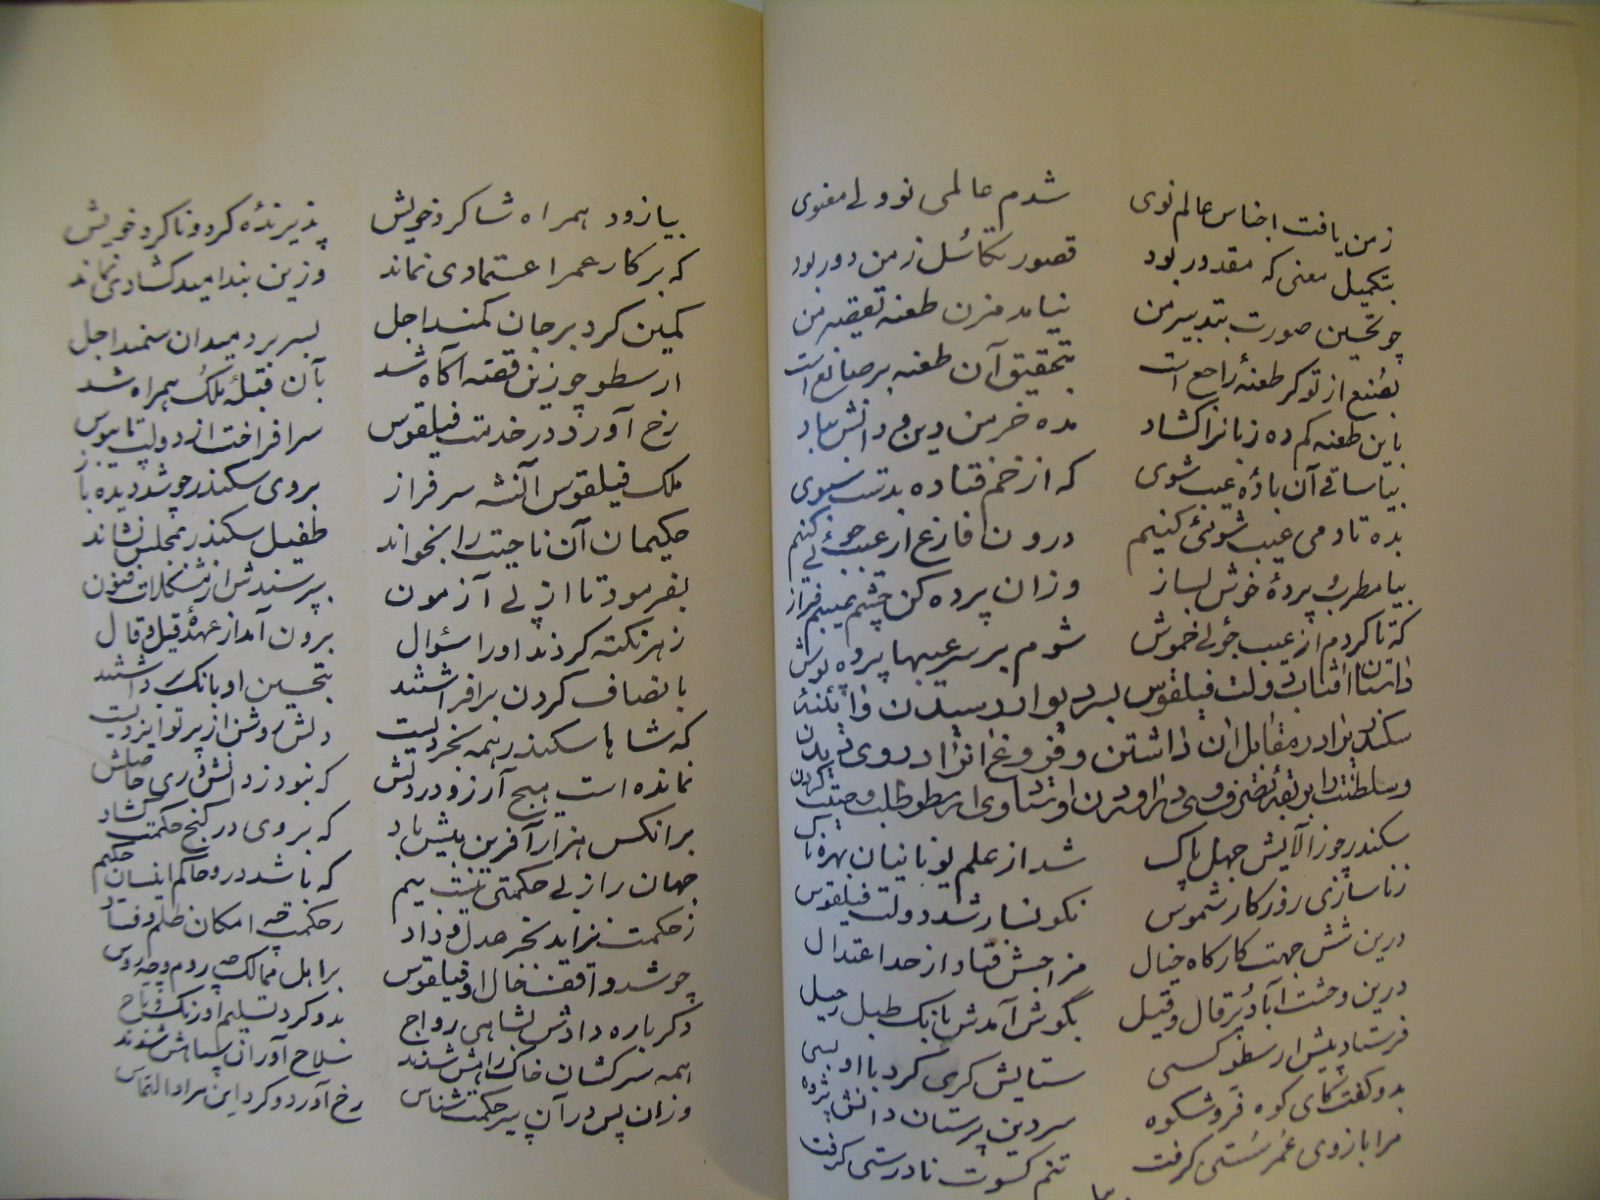 ز من یافت اجناس عالم نوی شدم عالمی نو ولی معنوی
بتکمیل معنی که مقدور بود قصور تکاسل ز من دور بود
چو تحسین صورت بتدبیر من نیامد مزن طعنه تقصیر من
بصنع ار تو گر طعنهٔ راجع است بتحقیق آن طعنه بر صانع است
باین طعنه کم ده زبانرا گشاد مده خرمن دین و دانش بباد
بیا ساقی آن بادهٔ عیب شوی که از خم فتاده بدست سبوی
بده تا دمی عیب شوئی کنیم درون فارغ از عیب جوئی کنیم
بیا مطرب پردهٔ خوش بساز وزان پرده کن چشم عیبم فراز
که تا گردم از عیب جوئی خموش شوم بر سر عیبها پرده پوش
داستان آفتاب دولت فیلقوس بسر دیوار رسیدن و آئنهٔ
سکندر را در مقابل آن داشتن و فروغ آنرا در وی دیدن
سکندر چو ز آلایش جهل پاک شد از علم یونانیان بهره ناک
ز ناسازی روزگار شموس نگونسار شد دولت فیلقوس
درین شش جهت کارگاه خیال مزاجش فتاد از حد اعتدال
درین وحشت آباد پر قال و قیل بگوش آمدش بانگ طبل رحیل
فرستاد پیش ارسطو کسی ستایش گری کرد با او بسی
بدو گفت کای کوه فر و شکوه سر دین پرستان دانش پژوه
مرا بازوی عمر سستی گرفت تنم کسوت نادرستی گرفت
بیا زود همراه شاگرد خویش پذیرندهٔ کرد و ناکرد خویش
که بر کار عمر اعتمادی نماند وزین بند امید گشادی نماند
کمین کرد بر جان کمند اجل بسر برد میدان سمند اجل
ارسطو چو زین قصه آگاه شد بآن قبلهٔ ملک همراه شد
رخ آورد در خدمت فیلقوس سر افراخت از دولت پایبوس
ملک فیلقوس آنشه سرفراز بروی سکندر چو شد دیده باز
حکیمان آن ناحیت را بخواند طفیل سکندر بمجلس نشاند
بفرمود تا از پی آزمون بپرسندش از مشکلات فنون
ز هر نکته کردند او را سؤال برون آمد از عهدهٔ قیل و قال
بانصاف گردن برافراشتند بتحسین او بانگ برداشتند
که شاها سکندر همه بخردیست دلش روشن از پرتو ایزدیست
نمانده است هیچ آرزو در دلش که نبود ز دانش وری حاصلش
بر انکس هزار آفرین بیش باد که بر وی در گنج حکمت گشاد
جهان را ز بی حکمتی نیست بیم که باشد درو حاکم اینسان حکیم
ز حکمت نزاید بجز عدل و داد ز حکمت چه امکان ظلم و فساد
چو شد واقف حال او فیلقوس بر اهل ممالک چه روم و چه روس
دگر باره دادش بشاهی رواج بدو کرد تسلیم اورنگ و تاج
همه سرکشان خاک راهش شدند سلاح آوران سپاهش شدند
وزان پس در آن پیر حکمت شناس رخ آورد و کرد این مراد التماس